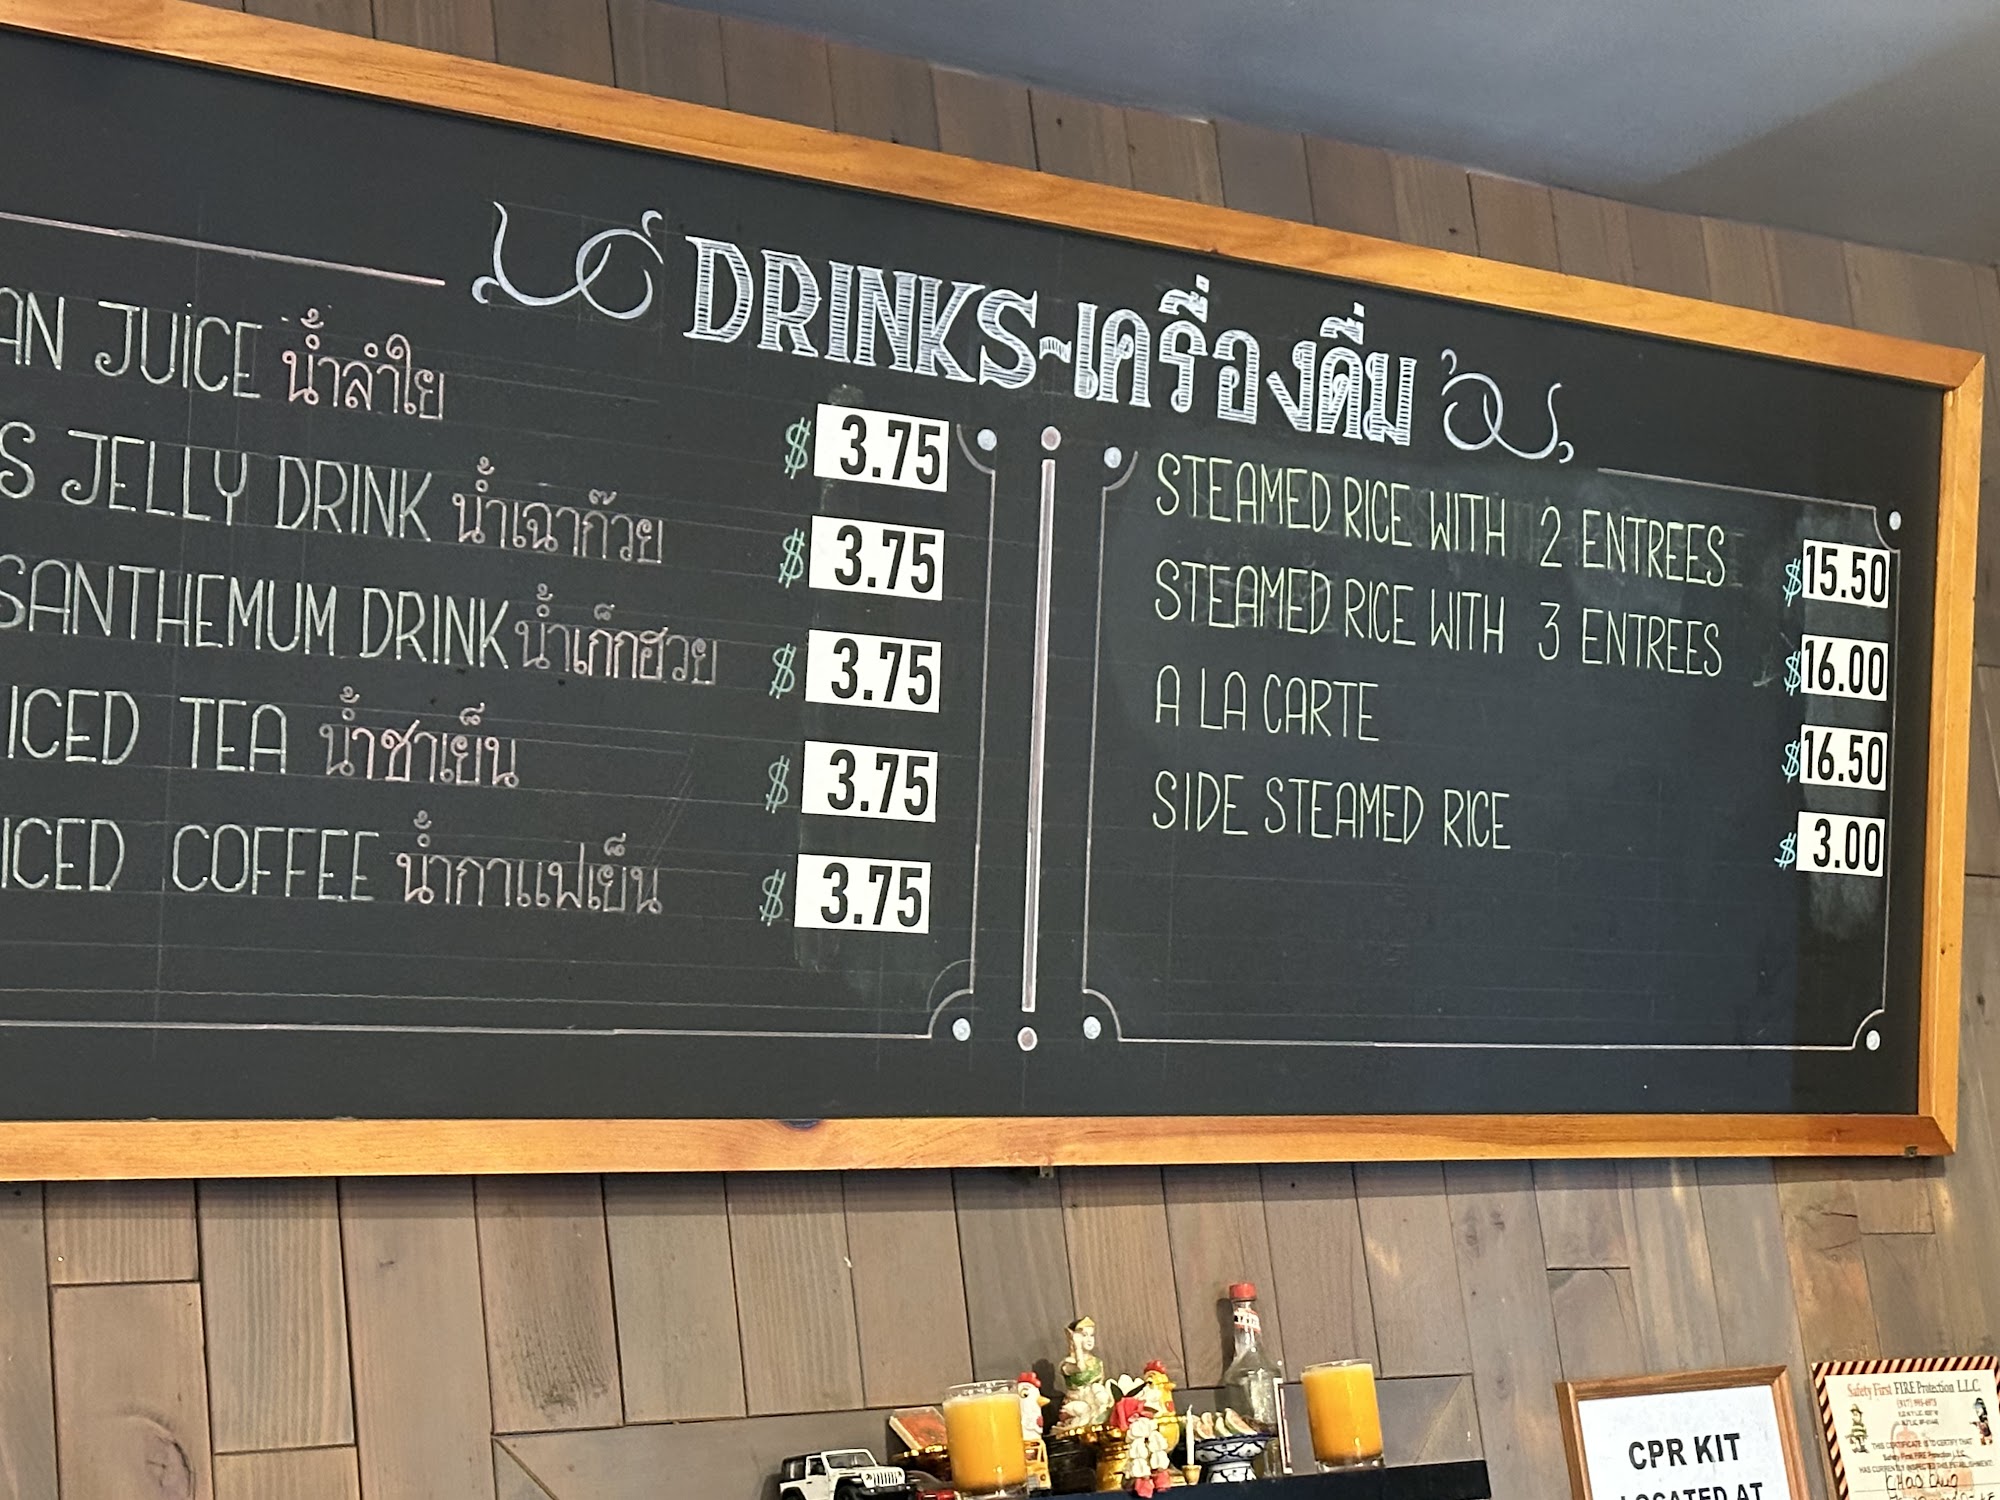 DRINKS~เครื่องดื่ม
AN JUICE น้ำลำใย $ 3.75
S JELLY DRINK น้ำเฉาก๊วย $ 3.75
SANTHEMUM DRINK น้ำเก็กฮวย $ 3.75
ICED TEA น้ำชาเย็น $ 3.75
ICED COFFEE น้ำกาแฟเย็น $ 3.75
STEAMED RICE WITH 2 ENTREES $ 15.50
STEAMED RICE WITH 3 ENTREES $ 16.00
A LA CARTE $ 16.50
SIDE STEAMED RICE $ 3.00
CPR KIT
LOCATED AT
Safety First FIRE Protection L.L.C.
THIS CERTIFICATE IS TO CERTIFY THAT
Safety First FIRE Protection L.L.C.
HAS CURRENTLY INSPECTED THIS ESTABLISHMENT: